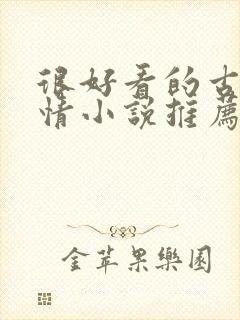 很好看的古
情小說推薦
金苹果樂園